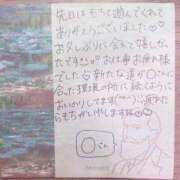 先日はもちもち遊んでくれて
ありがとうございました
お久しぶりに会えて嬉しかっ
たです お仕事お疲れ様
でした 新たな道が〇さんに
合った環境の所に就くように
おいのりしてます(^^) 疲れた
らもちがいやしますね
〇さん